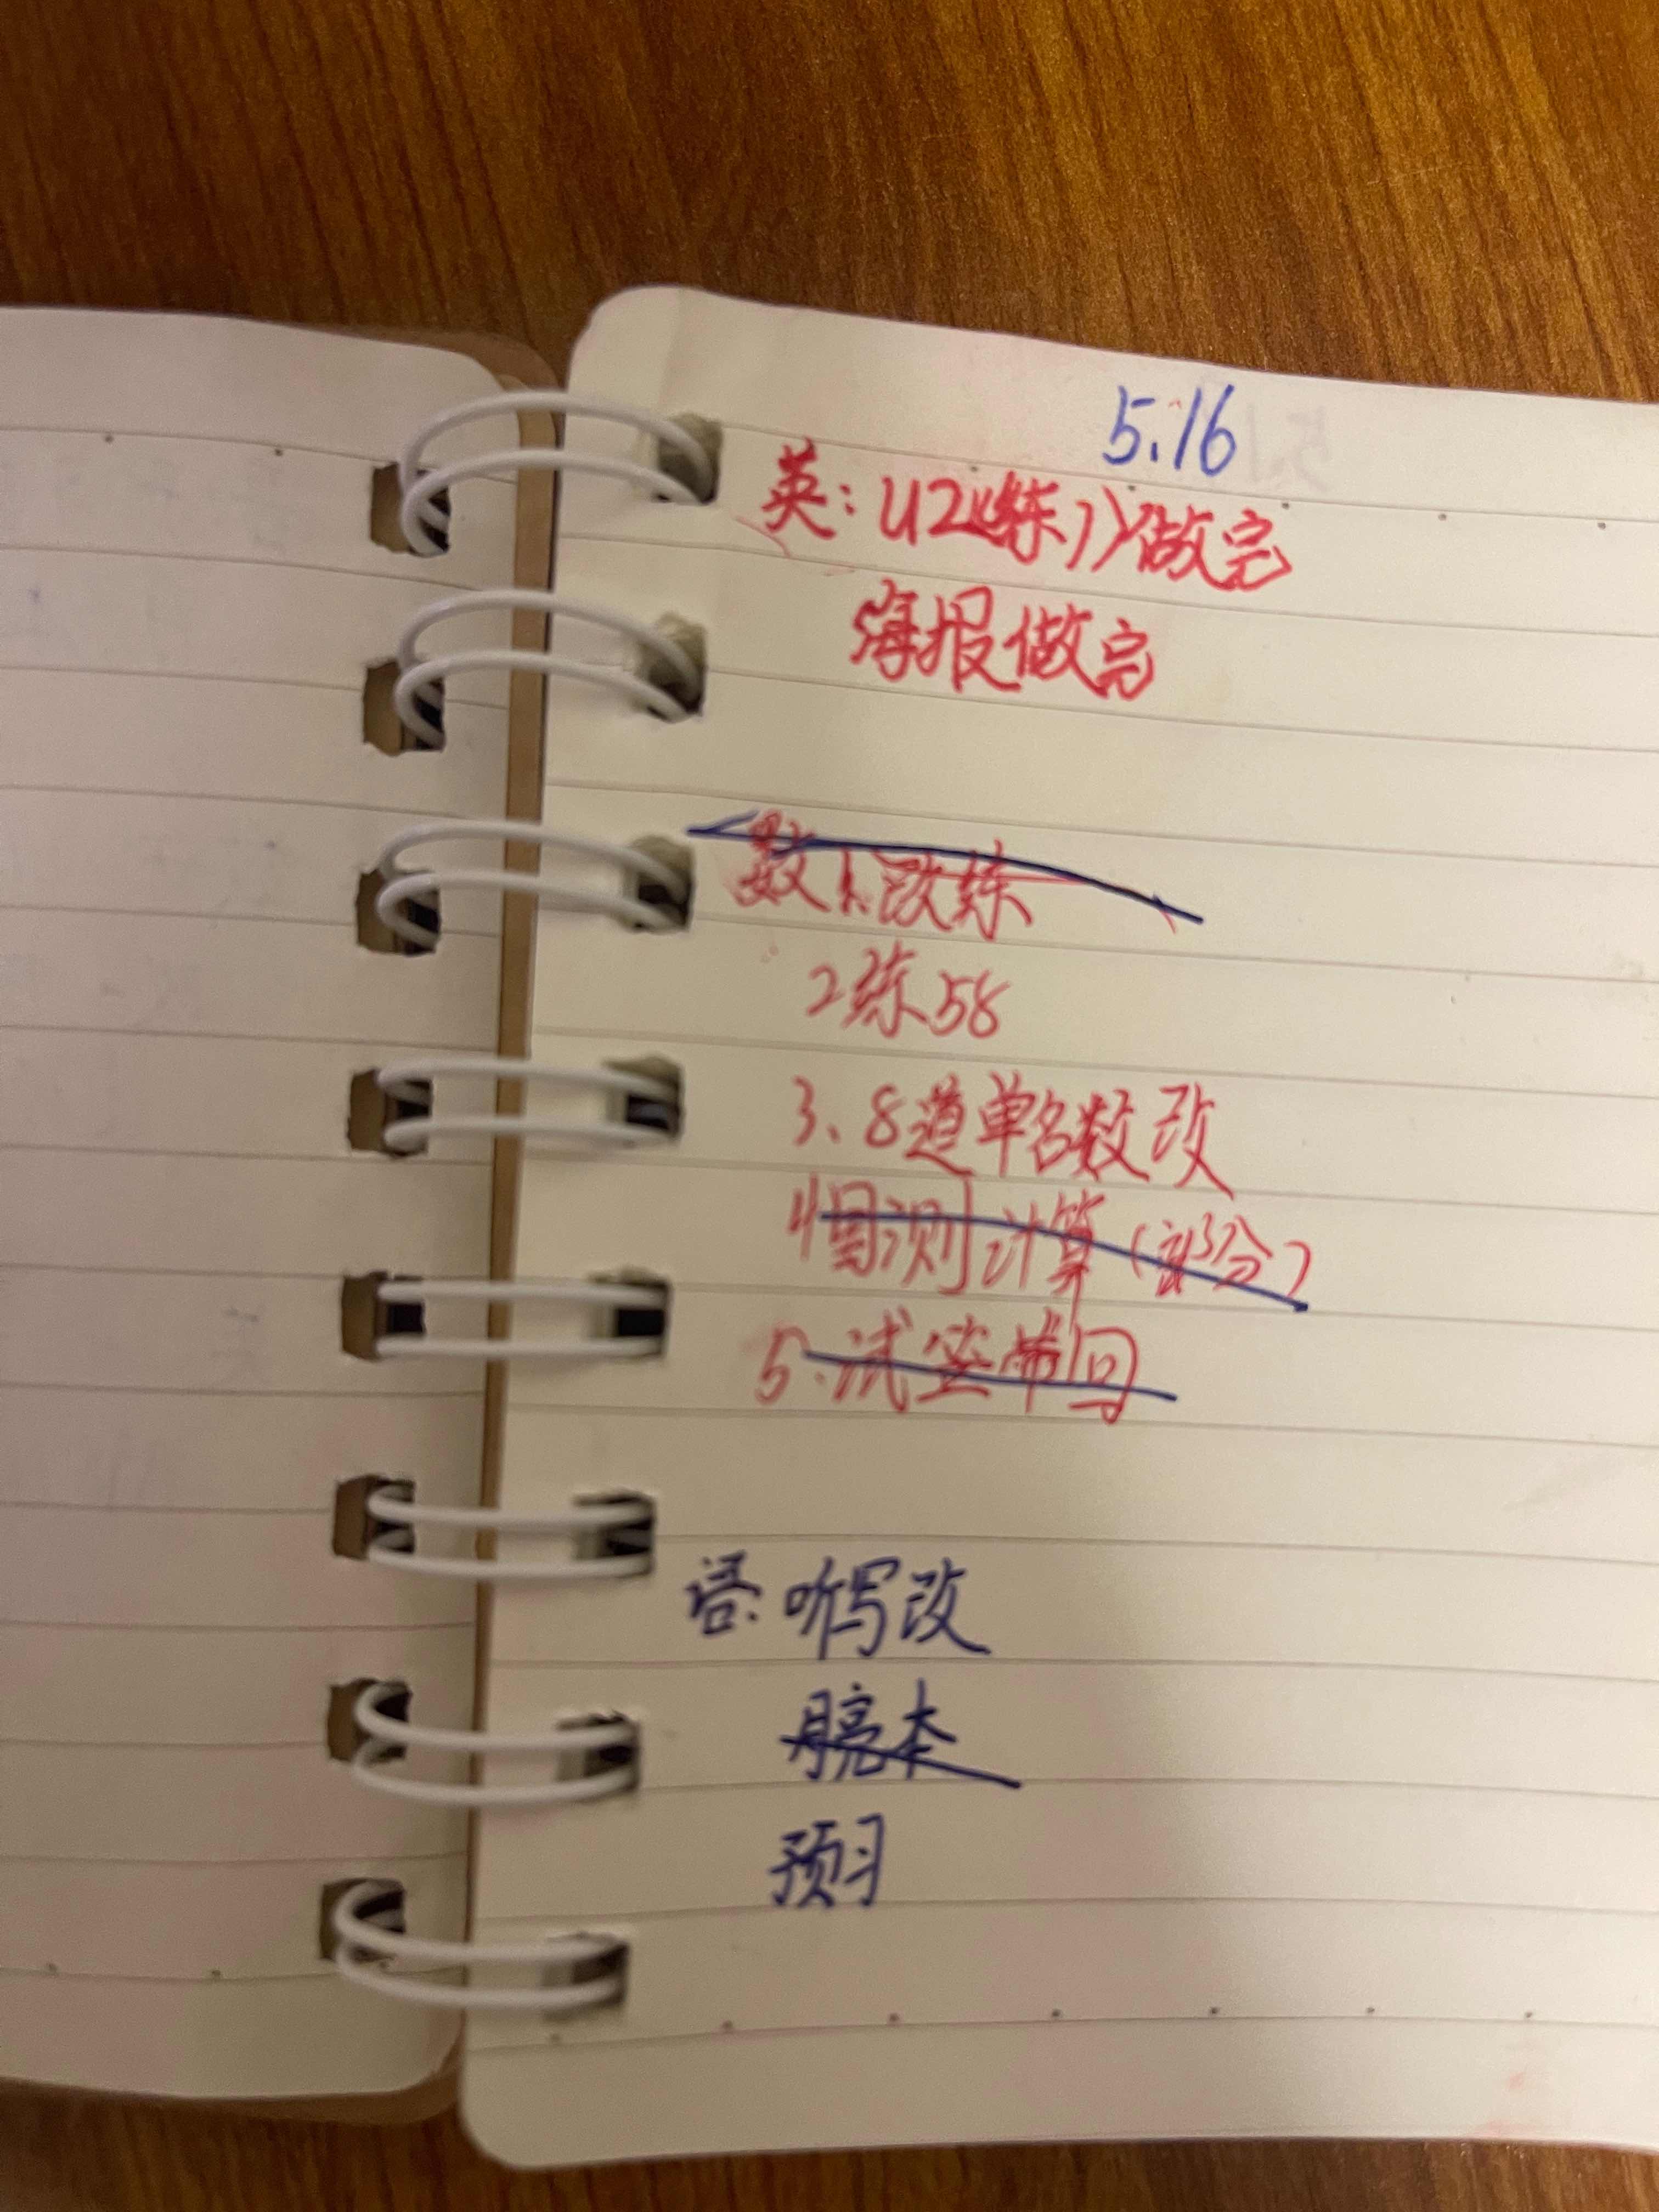 5.16
英：U2《练1》做完
海报做完
数1.改练
2练58
3、8道单名数改
4周测计算（部分）
5、试签带回
语：听写改
月亮本
预习